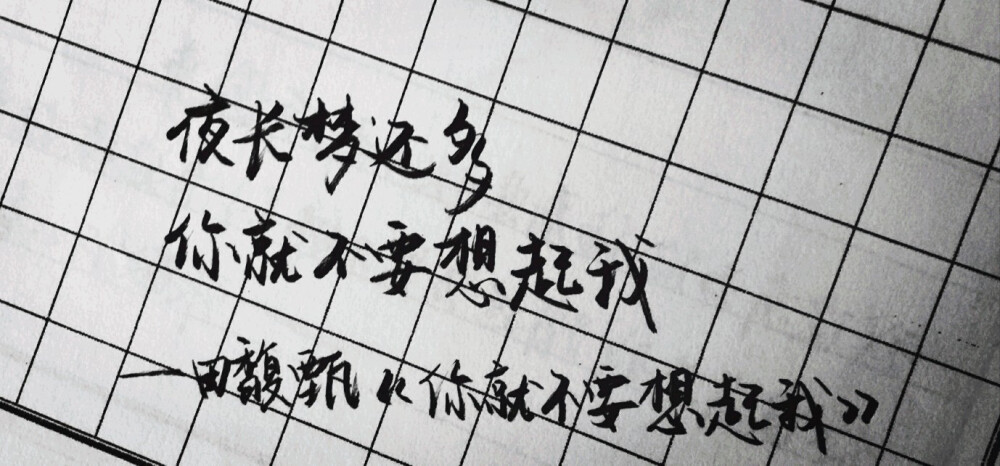 夜长梦还多
你就不要想起我
—田馥甄《你就不要想起我》